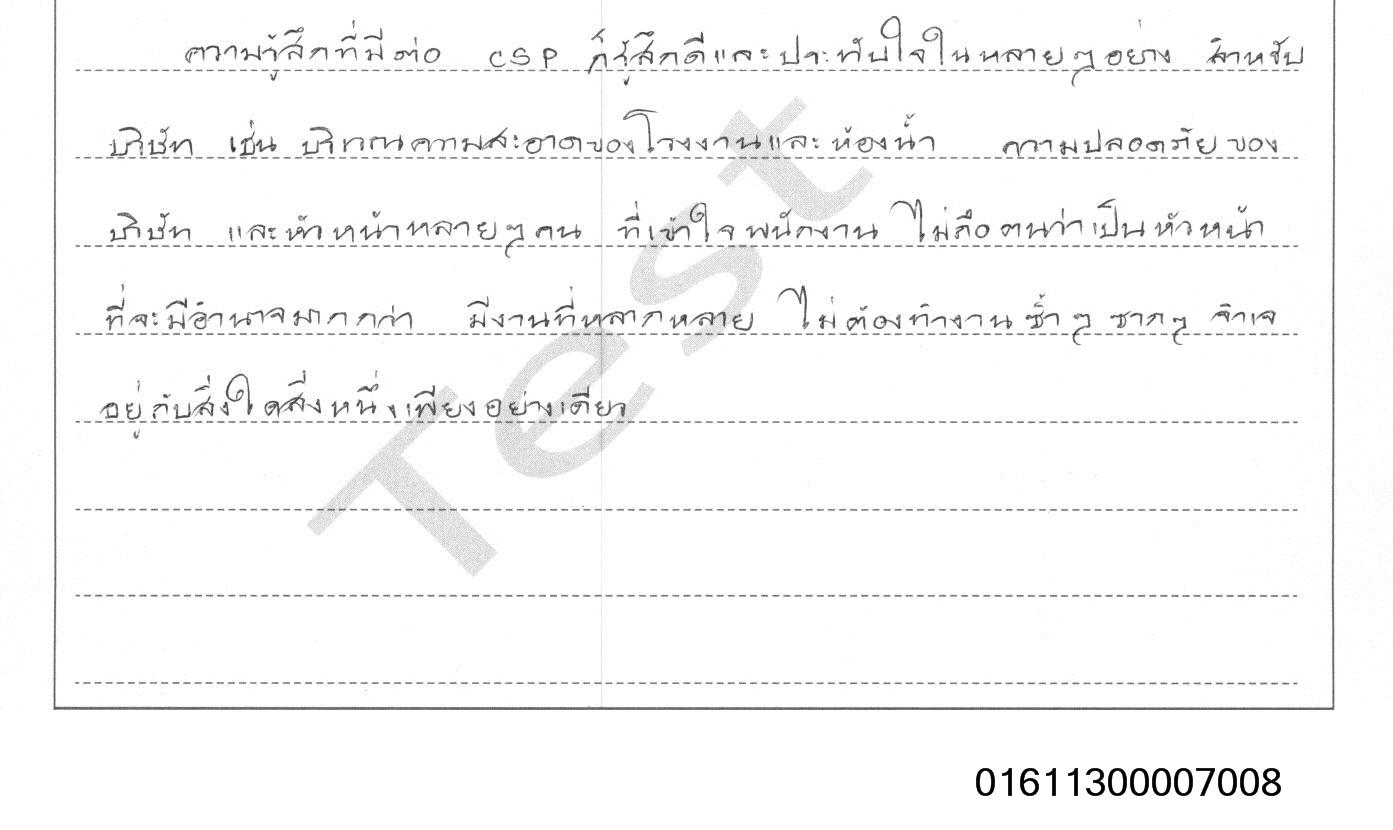 ความรู้สึกที่มีต่อ CSP ก็รู้สึกดีและประทับใจในหลายๆอย่าง สำหรับ
บริษัท เช่น บริเวณความสะอาดของโรงงานและห้องน้ำ ความปลอดภัยของ
บริษัท และหัวหน้าหลายๆคน ที่เข้าใจพนักงาน ไม่ถือตนว่าเป็นหัวหน้า
ที่จะมีอำนาจมากกว่า มีงานที่หลากหลาย ไม่ต้องทำงานซ้ำๆ ซากๆ จำเจ
อยู่กับสิ่งใดสิ่งหนึ่งเพียงอย่างเดียว
Test
01611300007008